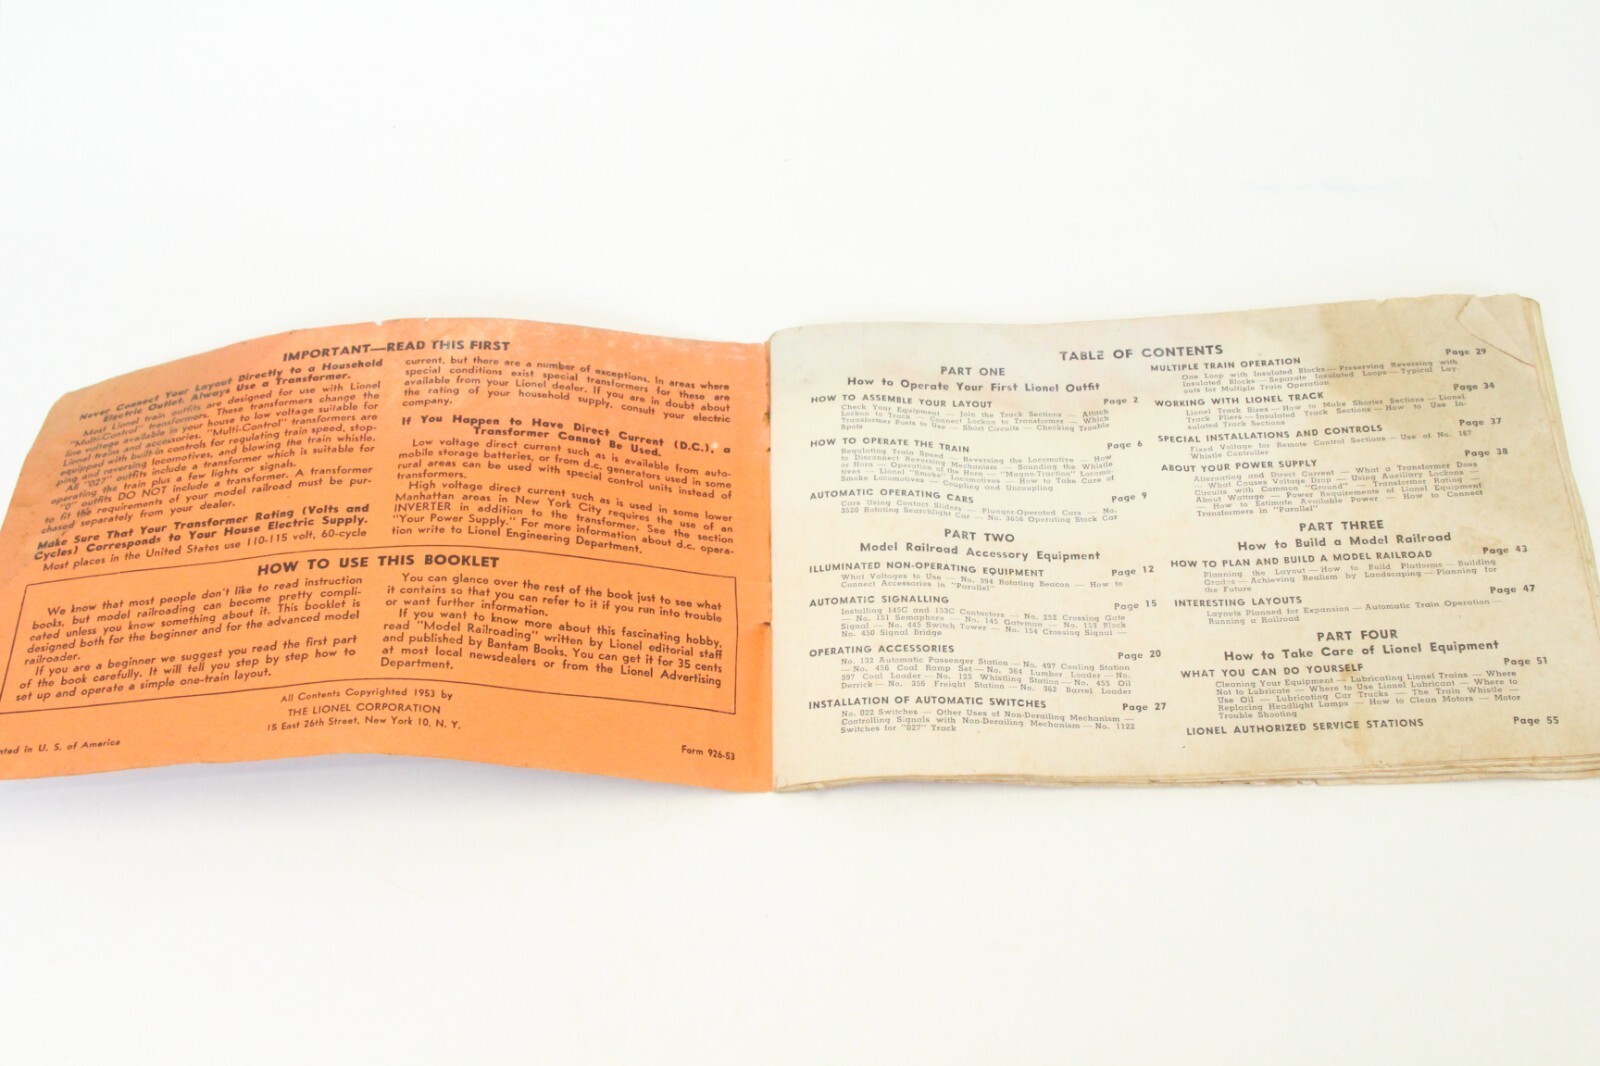 IMPORTANT—READ THIS FIRST
Never Connect Your Layout Directly to a Household
Electric Outlet. Always Use a Transformer.
Most Lionel train outfits are designed for use with Lionel
"Multi-Control" transformers. These transformers change the
line voltage available in your house to low voltage suitable for
Lionel trains and accessories. "Multi-Control" transformers are
equipped with built-in controls for regulating train speed, stop-
ping and reversing locomotives, and blowing the train whistle.
All "027" outfits include a transformer which is suitable for
operating the train plus a few lights or signals.
"O" outfits DO NOT include a transformer. A transformer
to fit the requirements of your model railroad must be pur-
chased separately from your dealer.
Make Sure That Your Transformer Rating (Volts and
Cycles) Corresponds to Your House Electric Supply.
Most places in the United States use 110-115 volt, 60-cycle
current, but there are a number of exceptions. In areas where
special conditions exist special transformers for these are
available from your Lionel dealer. If you are in doubt about
the rating of your household supply, consult your electric
company.
If You Happen to Have Direct Current (D.C.), a
Transformer Cannot Be Used.
Low voltage direct current such as is available from auto-
mobile storage batteries, or from d.c. generators used in some
rural areas can be used with special control units instead of
transformers.
High voltage direct current such as is used in some lower
Manhattan areas in New York City requires the use of an
INVERTER in addition to the transformer. See the section
"Your Power Supply." For more information about d.c. opera-
tion write to Lionel Engineering Department.
HOW TO USE THIS BOOKLET
We know that most people don't like to read instruction
books, but model railroading can become pretty compli-
cated unless you know something about it. This booklet is
designed both for the beginner and for the advanced model
railroader.
If you are a beginner we suggest you read the first part
of the book carefully. It will tell you step by step how to
set up and operate a simple one-train layout.
You can glance over the rest of the book just to see what
it contains so that you can refer to it if you run into trouble
or want further information.
If you want to know more about this fascinating hobby,
read "Model Railroading" written by Lionel editorial staff
and published by Bantam Books. You can get it for 35 cents
at most local newsdealers or from the Lionel Advertising
Department.
All Contents Copyrighted 1953 by
THE LIONEL CORPORATION
15 East 26th Street, New York 10, N. Y.
in U. S. of America
Form 926-53
TABLE OF CONTENTS
PART ONE
How to Operate Your First Lionel Outfit
HOW TO ASSEMBLE YOUR LAYOUT Page 2
Check Your Equipment — Join the Track Sections — Attach
Lockon to Track — Connect Lockon to Transformer — Which
Transformer Posts to Use — Short Circuits — Checking Trouble
Spots
HOW TO OPERATE THE TRAIN Page 6
Regulating Train Speed — Reversing the Locomotive — How
to Disconnect Reversing Mechanism — Sounding the Whistle
or Horn — Operation of the Horn — "Magne-Traction" Locomo-
tives — Lionel "Smoke" Locomotives — How to Take Care of
Smoke Locomotives — Coupling and Uncoupling
AUTOMATIC OPERATING CARS Page 9
Cars Using Contact Sliders — Plunger-Operated Cars — No.
3520 Rotating Searchlight Car — No. 3656 Operating Stock Car
PART TWO
Model Railroad Accessory Equipment
ILLUMINATED NON-OPERATING EQUIPMENT Page 12
What Voltages to Use — No. 394 Rotating Beacon — How to
Connect Accessories in "Parallel"
AUTOMATIC SIGNALLING Page 15
Installing 145C and 153C Contactors — No. 252 Crossing Gate
— No. 151 Semaphore — No. 145 Gateman — No. 153 Block
Signal — No. 445 Switch Tower — No. 154 Crossing Signal —
No. 450 Signal Bridge
OPERATING ACCESSORIES Page 20
No. 132 Automatic Passenger Station — No. 497 Coaling Station
— No. 456 Coal Ramp Set — No. 364 Lumber Loader — No.
397 Coal Loader — No. 125 Whistling Station — No. 455 Oil
Derrick — No. 356 Freight Station — No. 362 Barrel Loader
INSTALLATION OF AUTOMATIC SWITCHES Page 27
No. 022 Switches — Other Uses of Non-Derailing Mechanism —
Controlling Signals with Non-Derailing Mechanism — No. 1122
Switches for "027" Track
MULTIPLE TRAIN OPERATION Page 29
One Loop with Insulated Blocks — Preserving Reversing with
Insulated Blocks — Separate Insulated Loops — Typical Lay-
outs for Multiple Train Operation
WORKING WITH LIONEL TRACK Page 34
Lionel Track Sizes — How to Make Shorter Sections — Lionel
Track Pliers — Insulated Track Sections — How to Use In-
sulated Track Sections
SPECIAL INSTALLATIONS AND CONTROLS Page 37
Fixed Voltage for Remote Control Sections — Use of No. 167
Whistle Controller
ABOUT YOUR POWER SUPPLY Page 38
Alternating and Direct Current — What a Transformer Does
— What Causes Voltage Drop — Using Auxiliary Lockons —
Circuits with Common "Ground" — Transformer Rating —
About Wattage — Power Requirements of Lionel Equipment
— How to Estimate Available Power — How to Connect
Transformers in "Parallel"
PART THREE
How to Build a Model Railroad
HOW TO PLAN AND BUILD A MODEL RAILROAD Page 43
Planning the Layout — How to Build Platforms — Building
Grades — Achieving Realism by Landscaping — Planning for
the Future
INTERESTING LAYOUTS Page 47
Layouts Planned for Expansion — Automatic Train Operation —
Running a Railroad
PART FOUR
How to Take Care of Lionel Equipment
WHAT YOU CAN DO YOURSELF Page 51
Cleaning Your Equipment — Lubricating Lionel Trains — Where
Not to Lubricate — Where to Use Lionel Lubricant — Where to
Use Oil — Lubricating Car Trucks — The Train Whistle —
Replacing Headlight Lamps — How to Clean Motors — Motor
Trouble Shooting
LIONEL AUTHORIZED SERVICE STATIONS Page 55